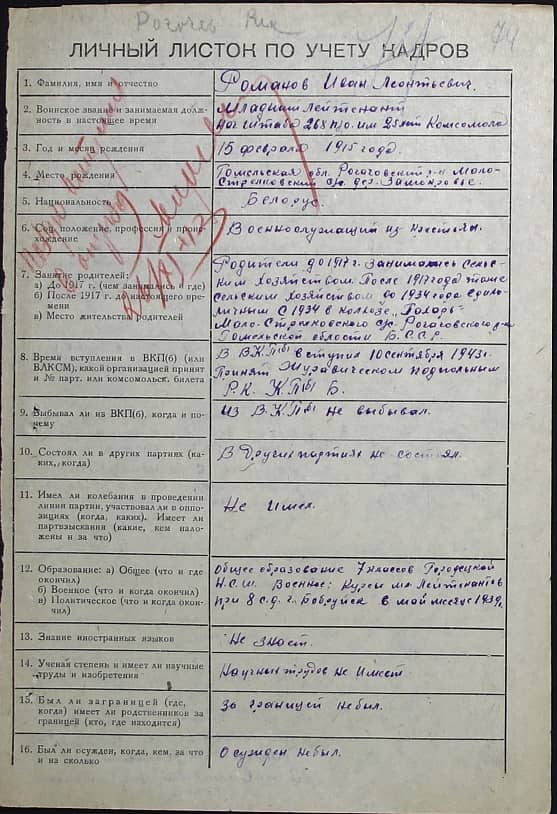 Рогачев
74
ЛИЧНЫЙ ЛИСТОК ПО УЧЕТУ КАДРОВ
1. Фамилия, имя и отчество
Романов Иван Леонтьевич.
2. Воинское звание и занимаемая долж-
ность в настоящее время
Младший Лейтенант
Нач штаба 268 п/о. им 25 лет Комсомола
3. Год и месяц рождения
15 февраля 1915 года.
4. Место рождения
Гомельская обл. Рогачовский р-н Мало-
Стрелковский с/с. дер.
5. Национальность
Белорус.
6. Соц. положение, профессия и проис-
хождение
Военнослужащий из крестьян.
7. Занятие родителей:
а) До 1917 г. (чем занимались и где)
б) После 1917 г. до настоящего вре-
мени
в) Место жительства родителей
Родители до 1917 г. Занимались сельс-
ким хозяйством. После 1917 года тоже
сельским хозяйством до 1934 года едино-
личным С 1934 в колхозе "Пахарь"
Мало-Стрелковского с/с. Рогачовского р-на
Гомельской области Б.С.С.Р.
8. Время вступления в ВКП(б) (или
ВЛКСМ), какой организацией принят
и № парт. или комсомольск. билета
В ВКП(б) вступил 10 сентября 1943 г.
Принят Журавическом подпольным
Р.К. КП(б) Б.
9. Выбывал ли из ВКП(б), когда и по-
чему
Из В.К.П(б) не выбывал.
10. Состоял ли в других партиях (ка-
ких, когда)
В других партиях не состоял.
11. Имел ли колебания в проведении
линии партии, участвовал ли в оппо-
зициях (когда, каких). Имеет ли
партвзыскания (какие, кем нало-
жены и за что)
Не имел.
12. Образование: а) Общее (что и где
окончил)
б) Военное (что и когда окончил)
в) Политическое (что и когда окон-
чил)
Общее образование 7 классов Городецкой
Н.С.Ш. Военное: Курсы мл Лейтенантов
при 8 с.д. г. Бобруйск в май месяце 1939 г.
13. Знание иностранных языков
Не знает.
14. Ученая степень и имеет ли научные
труды и изобретения
Научных трудов не имеет.
15. Был ли заграницей (где,
когда) имеет ли родственников за
границей (кто, где находится)
За границей не был.
16. Был ли осужден, когда, кем, за что
и на сколько
Осужден не был.